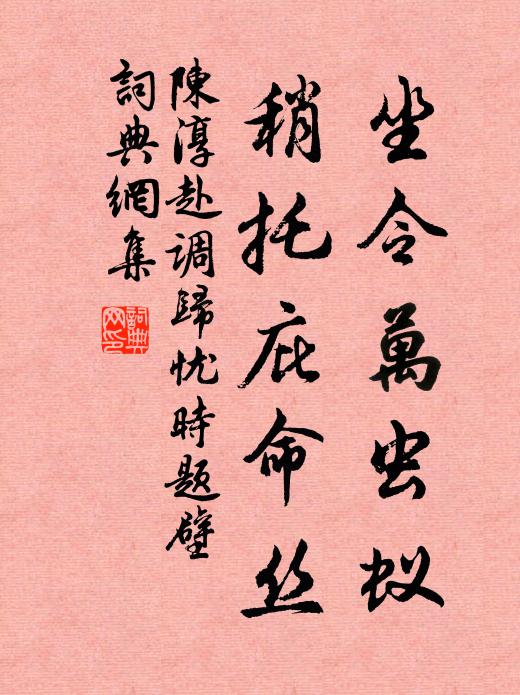 坐令萬虫蚁
稍托庇命丝
陳淳赴调歸忧時题壁
詞典網集
詞典网印